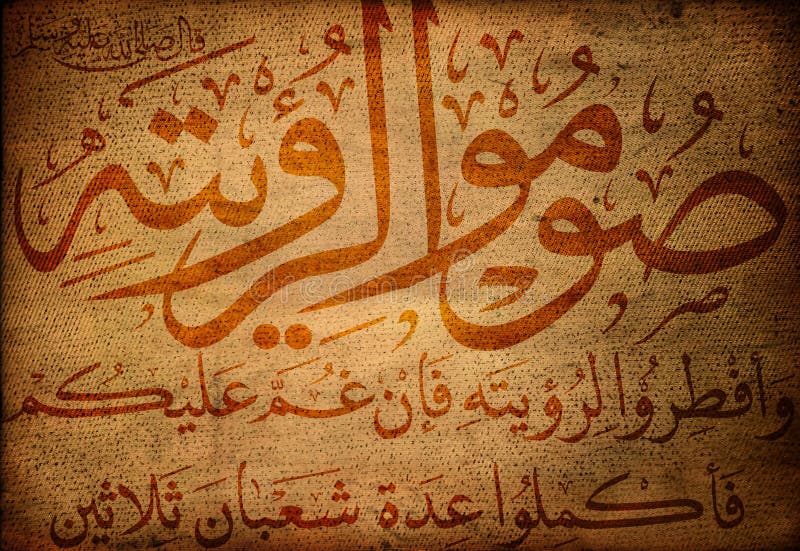 قال صلى الله عليه وسلم
صُومُوا لِرُؤيَتِهِ
وَأَفْطِرُوا لِرُؤيَتِهِ فَإِنْ غُمَّ عَلَيْكُم
فَأَكْمِلُوا عِدَةَ شَعْبَانَ ثَلَاثِين
dreamstime